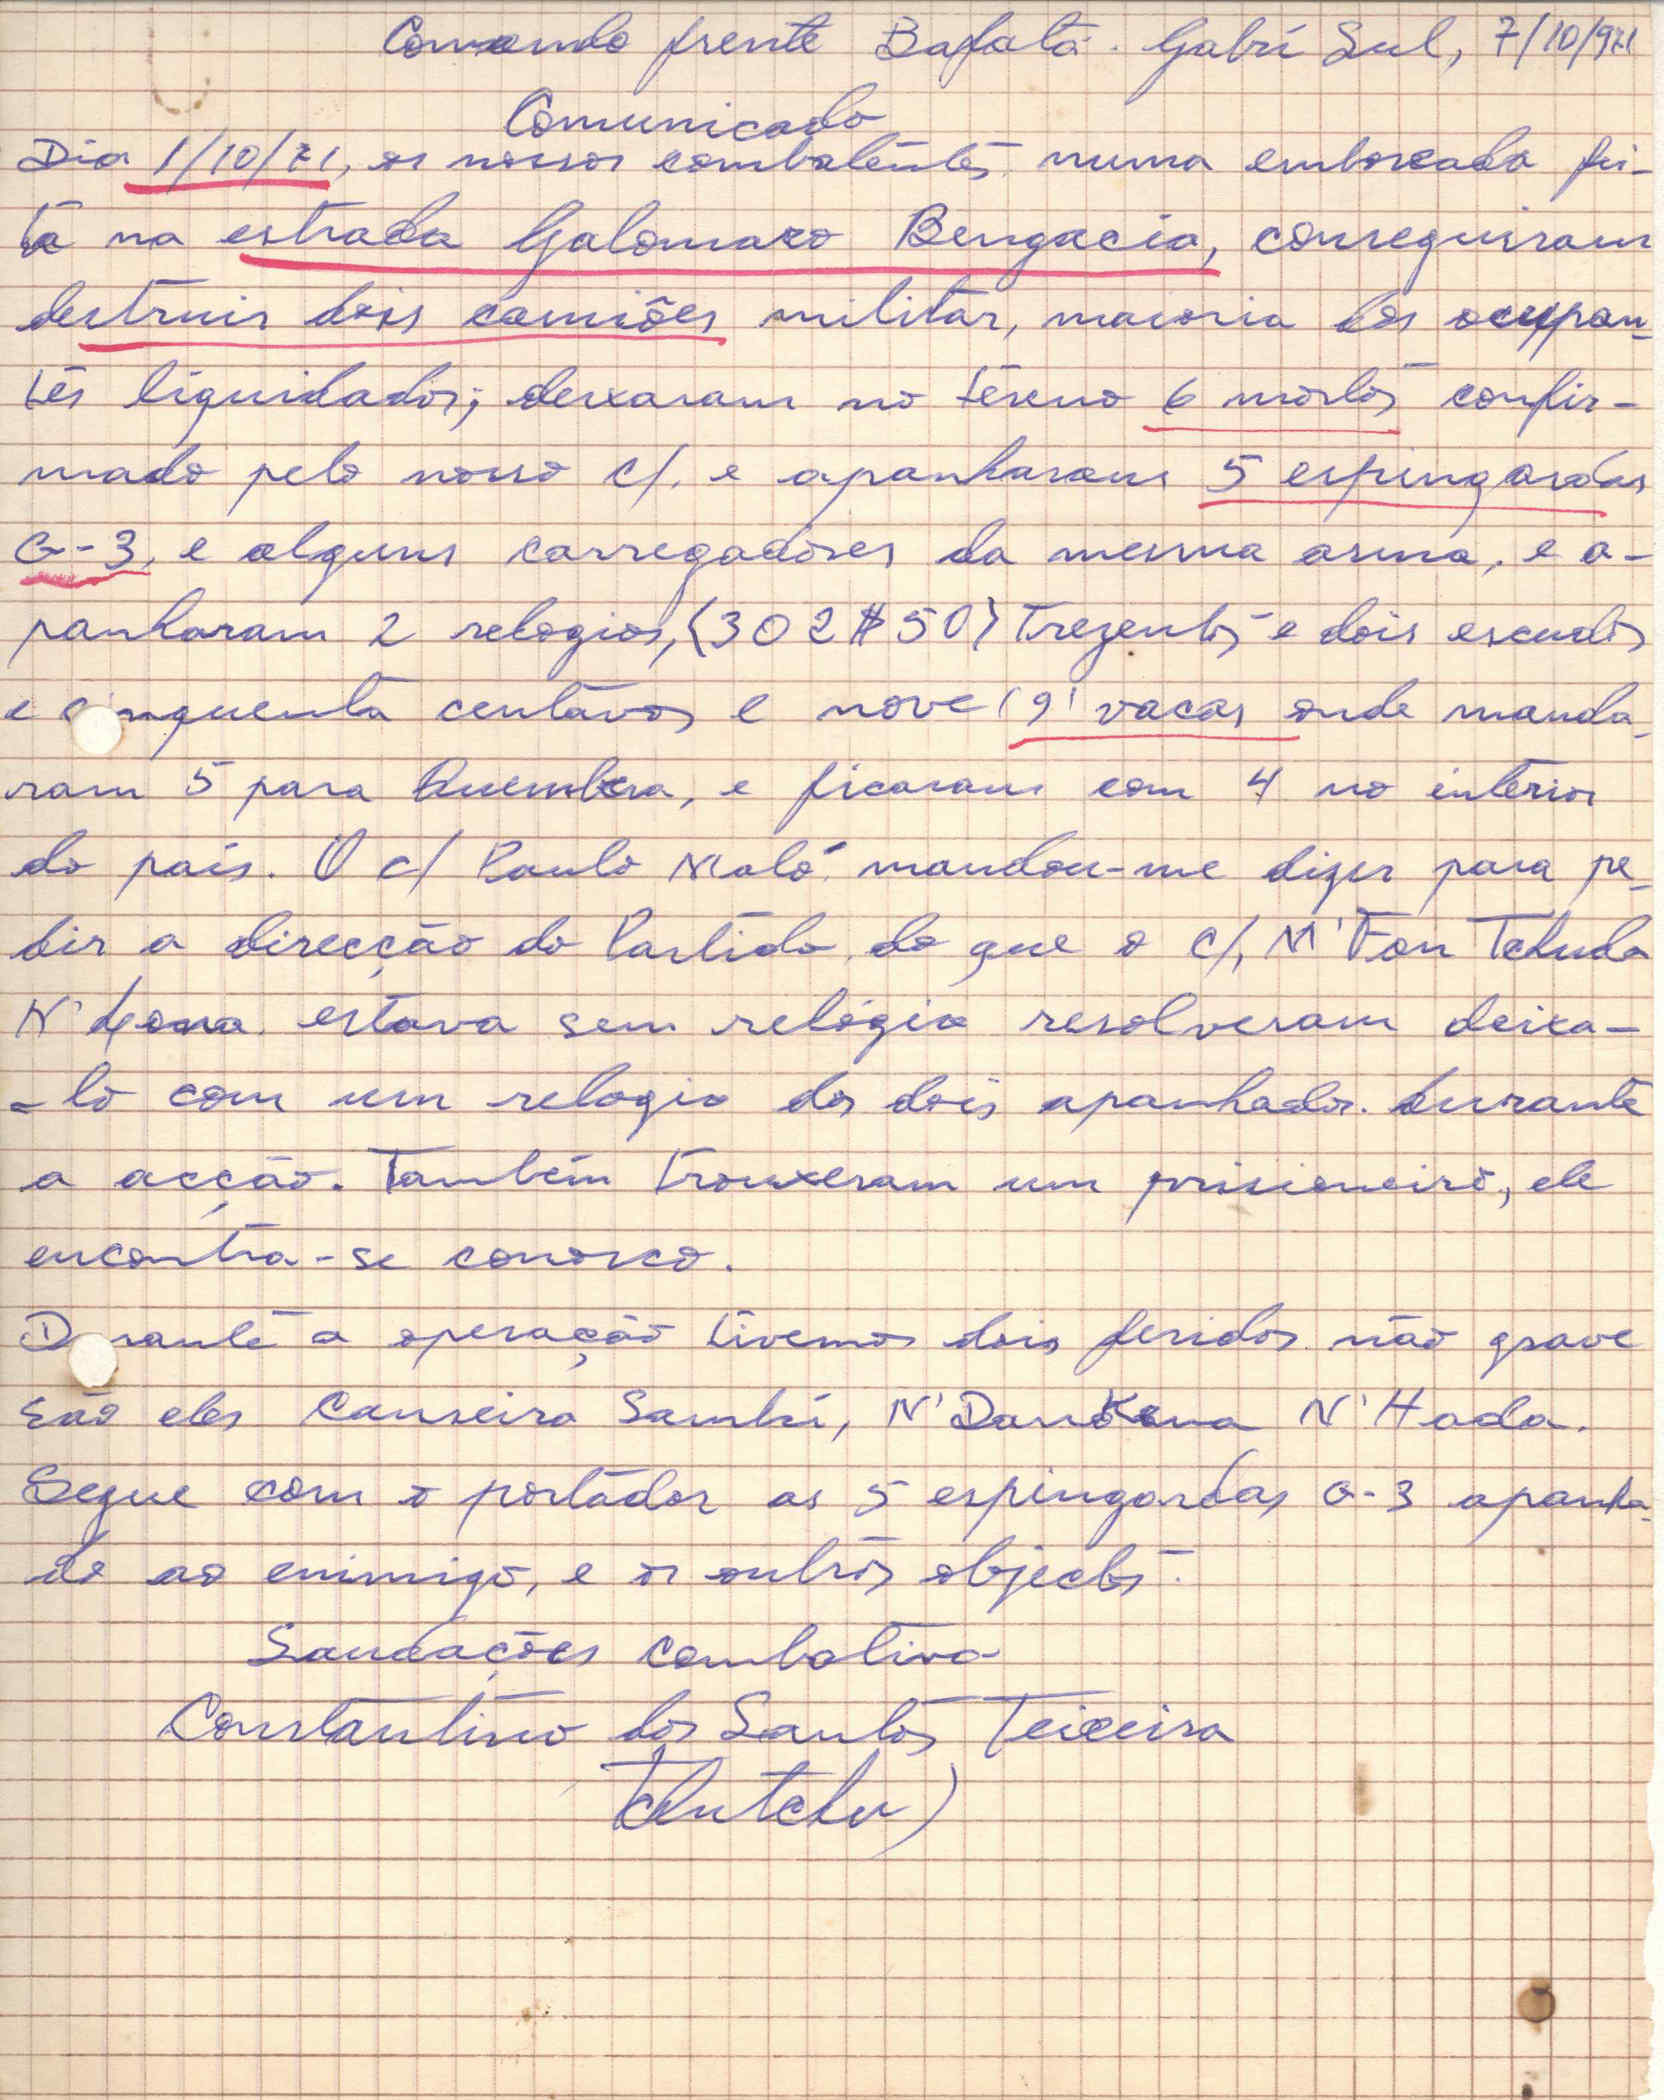 Comando frente Bafatá. Gabú Sul, 7/10/971
Comunicado
Dia 1/10/71, os nossos combatentes numa emboscada fei-
ta na estrada Galomaro Bengacia, conseguiram
destruir dois camiões militar, maioria dos ocupan-
tes liquidados; deixaram no tereno 6 mortos confir-
mado pelo nosso c/. e apanharam 5 espingardas
G-3, e alguns carregadores da mesma arma, e a-
panharam 2 relogios, (302$50) Trezentos e dois escudos
e cinquenta centavos e nove (9) vacas onde manda-
ram 5 para Kuembra, e ficaram com 4 no interior
do país. O c/ Paulo Maló mandou-me dizer para pe-
dir a direcção do Partido do que o c/, M'Fon Tchuda
N' estava sem relógio resolveram deixa-
-lo com um relogio dos dois apanhados durante
a acção. Também trouxeram um prisioneiro, ele
encontra-se conosco.
Durante a operação tivemos dois feridos não grave
são eles Canseira Sambú, N' N'Hada.
Segue com o portador as 5 espingardas G-3 apanha-
do ao enimigo, e os outros objectos.
Saudações combativa
Constantino dos Santos Teixeira
Tchutchu)